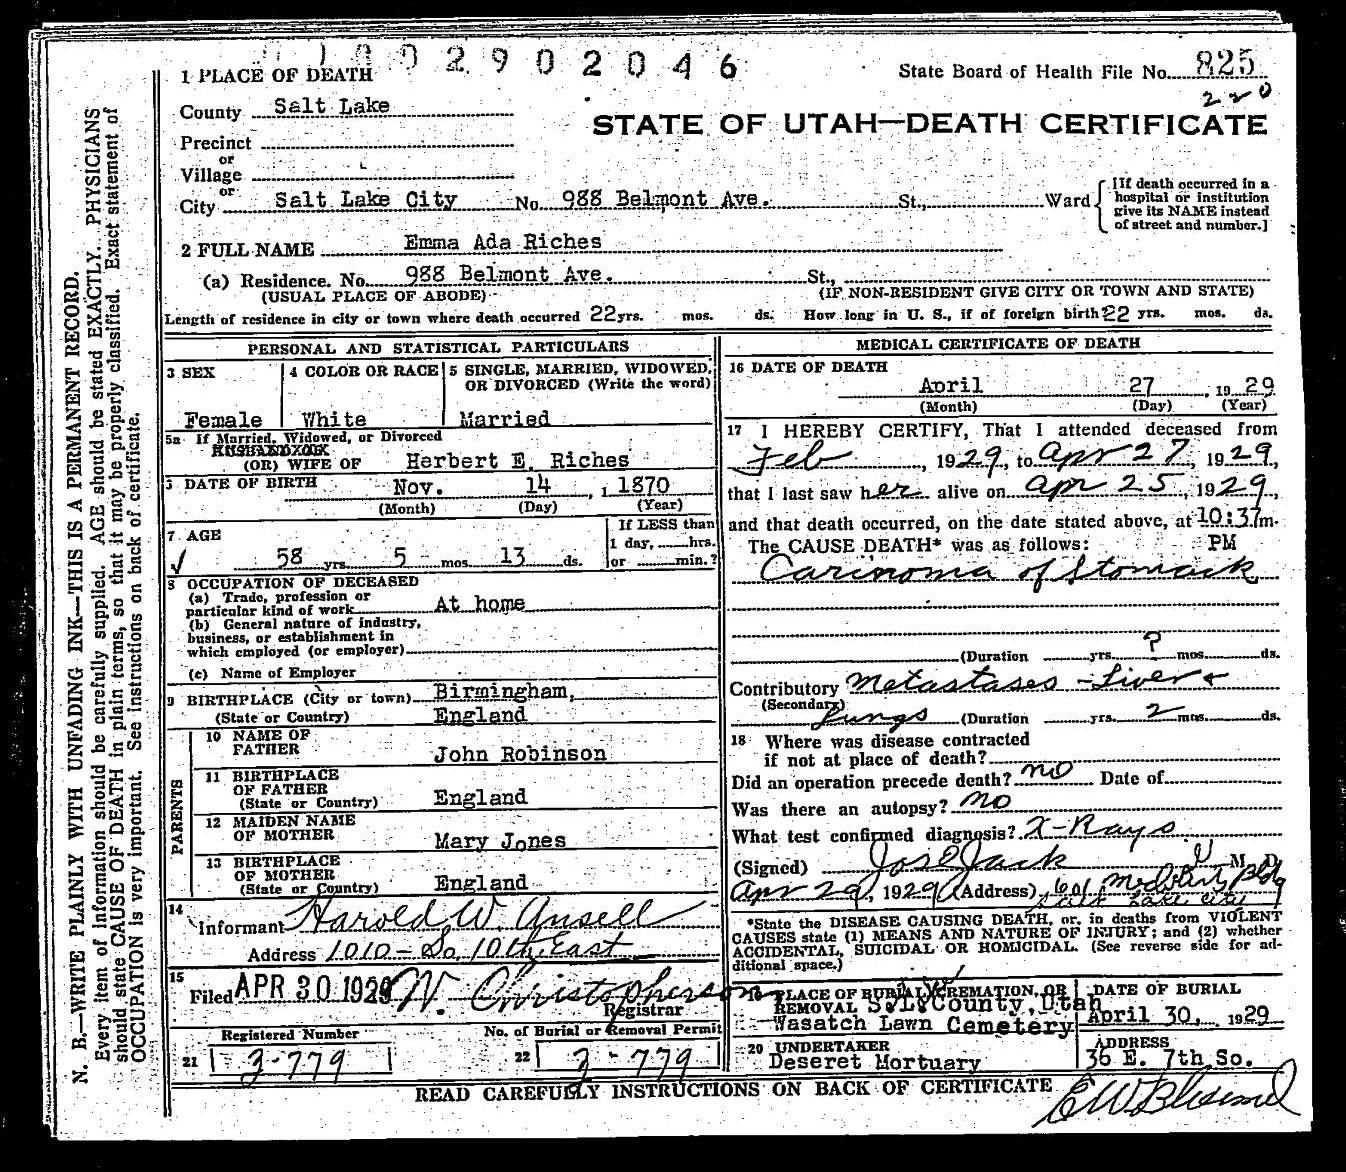 2 9 0 2 0 4 6
1 PLACE OF DEATH
State Board of Health File No. 825
220
County Salt Lake
STATE OF UTAH—DEATH CERTIFICATE
Precinct
or
Village
or
City Salt Lake City No. 988 Belmont Ave. St., Ward
[If death occurred in a
hospital or institution
give its NAME instead
of street and number.]
2 FULL NAME Emma Ada Riches
(a) Residence. No. 988 Belmont Ave. St.,
(USUAL PLACE OF ABODE) (IF NON-RESIDENT GIVE CITY OR TOWN AND STATE)
Length of residence in city or town where death occurred 22 yrs. mos. ds. How long in U. S., if of foreign birth 22 yrs. mos. ds.
PERSONAL AND STATISTICAL PARTICULARS
3 SEX 4 COLOR OR RACE 5 SINGLE, MARRIED, WIDOWED,
OR DIVORCED (Write the word)
Female White Married
5a If Married, Widowed, or Divorced
HUSBAND OR
(OR) WIFE OF Herbert E. Riches
DATE OF BIRTH Nov. 14, 1870
(Month) (Day) (Year)
7 AGE
If LESS than
1 day, hrs.
or min.?
58 yrs. 5 mos. 13 ds.
8 OCCUPATION OF DECEASED
(a) Trade, profession or
particular kind of work At home
(b) General nature of industry,
business, or establishment in
which employed (or employer)
(c) Name of Employer
9 BIRTHPLACE (City or town) Birmingham,
(State or Country) England
PARENTS
10 NAME OF
FATHER John Robinson
11 BIRTHPLACE
OF FATHER
(State or Country) England
12 MAIDEN NAME
OF MOTHER Mary Jones
13 BIRTHPLACE
OF MOTHER
(State or Country) England
14
Informant Harold W. Ansell
Address 1010 - So. 10th East
15
Filed APR 30 1929 W. Christopherson
Registrar
Registered Number No. of Burial or Removal Permit
21 3-779 22 3-779
MEDICAL CERTIFICATE OF DEATH
16 DATE OF DEATH
April 27, 1929
(Month) (Day) (Year)
17 I HEREBY CERTIFY, That I attended deceased from
Feb, 1929, to Apr 27, 1929,
that I last saw her alive on Apr 25, 1929,
and that death occurred, on the date stated above, at 10:37m.
The CAUSE DEATH* was as follows: PM
Carinoma of Stomack
(Duration yrs. ? mos. ds.
Contributory Metastases - Liver +
(Secondary)
Lungs (Duration yrs. 2 mos. ds.
18 Where was disease contracted
if not at place of death?
Did an operation precede death? no Date of
Was there an autopsy? no
What test confirmed diagnosis? X-Rays
(Signed) Jos E Jack M. D.
Apr 29, 1929 (Address) 601 Med Arts Bldg
Salt Lake City
*State the DISEASE CAUSING DEATH, or, in deaths from VIOLENT
CAUSES state (1) MEANS AND NATURE OF INJURY; and (2) whether
ACCIDENTAL, SUICIDAL OR HOMICIDAL. (See reverse side for ad-
ditional space.)
19 PLACE OF BURIAL, CREMATION, OR
REMOVAL S.L. County, Utah
Wasatch Lawn Cemetery
DATE OF BURIAL
April 30, 1929
20 UNDERTAKER
Deseret Mortuary
ADDRESS
36 E. 7th So.
READ CAREFULLY INSTRUCTIONS ON BACK OF CERTIFICATE
N. B.—WRITE PLAINLY WITH UNFADING INK—THIS IS A PERMANENT RECORD.
Every item of information should be carefully supplied. AGE should be stated EXACTLY. PHYSICIANS
should state CAUSE OF DEATH in plain terms, so that it may be properly classified. Exact statement of
OCCUPATION is very important. See instructions on back of certificate.